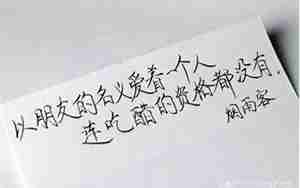 以朋友的名义爱着一个人
连吃醋的资格都没有.
烟雨客